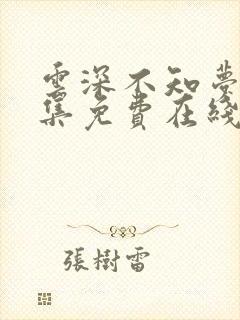 雲深不知夢
集免費在綫
張樹雷